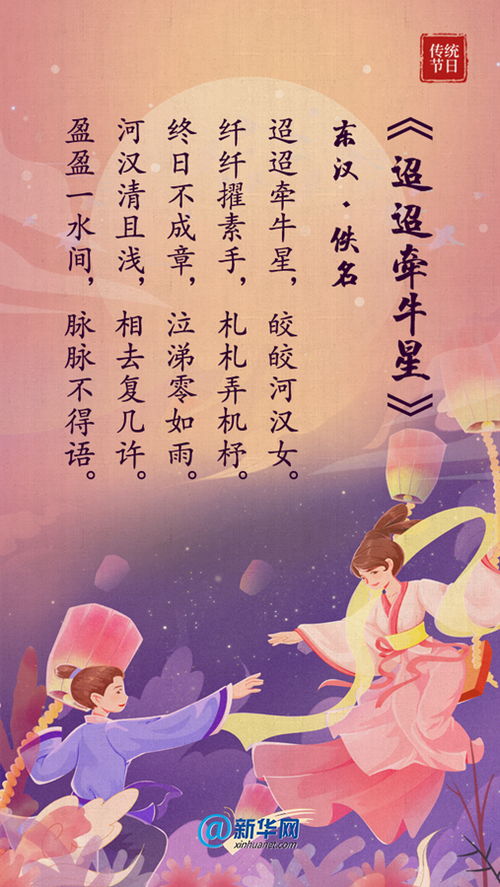 《迢迢牵牛星》
东汉·佚名
迢迢牵牛星，皎皎河汉女。
纤纤擢素手，札札弄机杼。
终日不成章，泣涕零如雨。
河汉清且浅，相去复几许。
盈盈一水间，脉脉不得语。
传统
节日
@新华网
xinhuanet.com